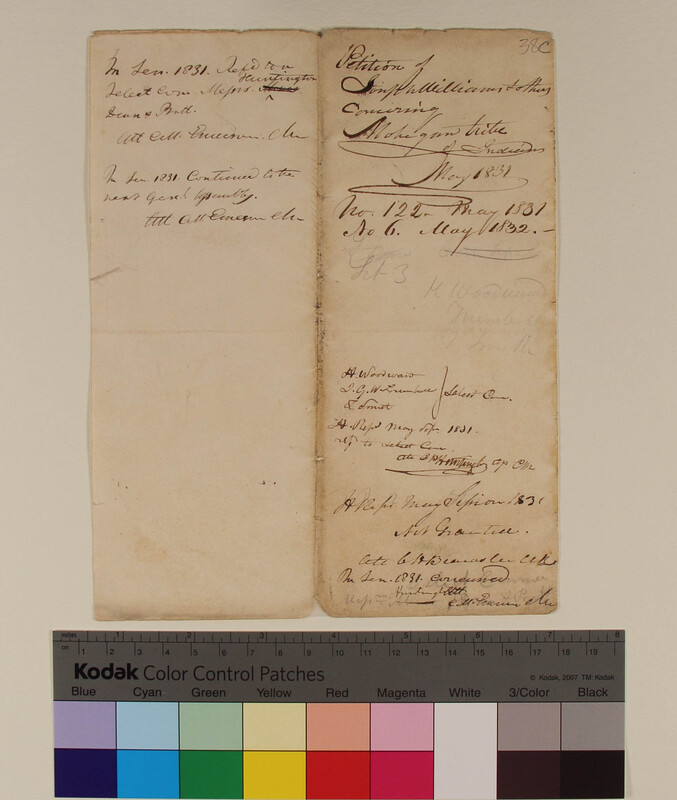 In Sen. 1831. Refd to a
Huntington
Select Com. Messrs.
Deans & Bull.
Att C.M. Emerson. Clk
In Sen. 1831. Continued to the
next Genl Assembly.
Att C.M. Emerson Clk
38C
Petition of
Joseph Williams & others
Concerning
Mohegan tribe
of Indians
May 1831
No. 122. May 1831
No 6. May 1832.
3
H Woodward
Trumbull
Smith
H. Woodward
J. G. W. Trumbull
Smith
Select Com.
H. Reps May 1831.
to Select Com.
Huntington Clk
H Reps May Session 1831
Not Granted.
Clk
In Sen. 1831. Concurred
Huntington Att
C.M. Emerson Clk
inches 1 2 3 4 5 6 7 8
cm 1 2 3 4 5 6 7 8 9 10 11 12 13 14 15 16 17 18 19
Kodak Color Control Patches
© Kodak, 2007 TM: Kodak
Blue Cyan Green Yellow Red Magenta White 3/Color Black